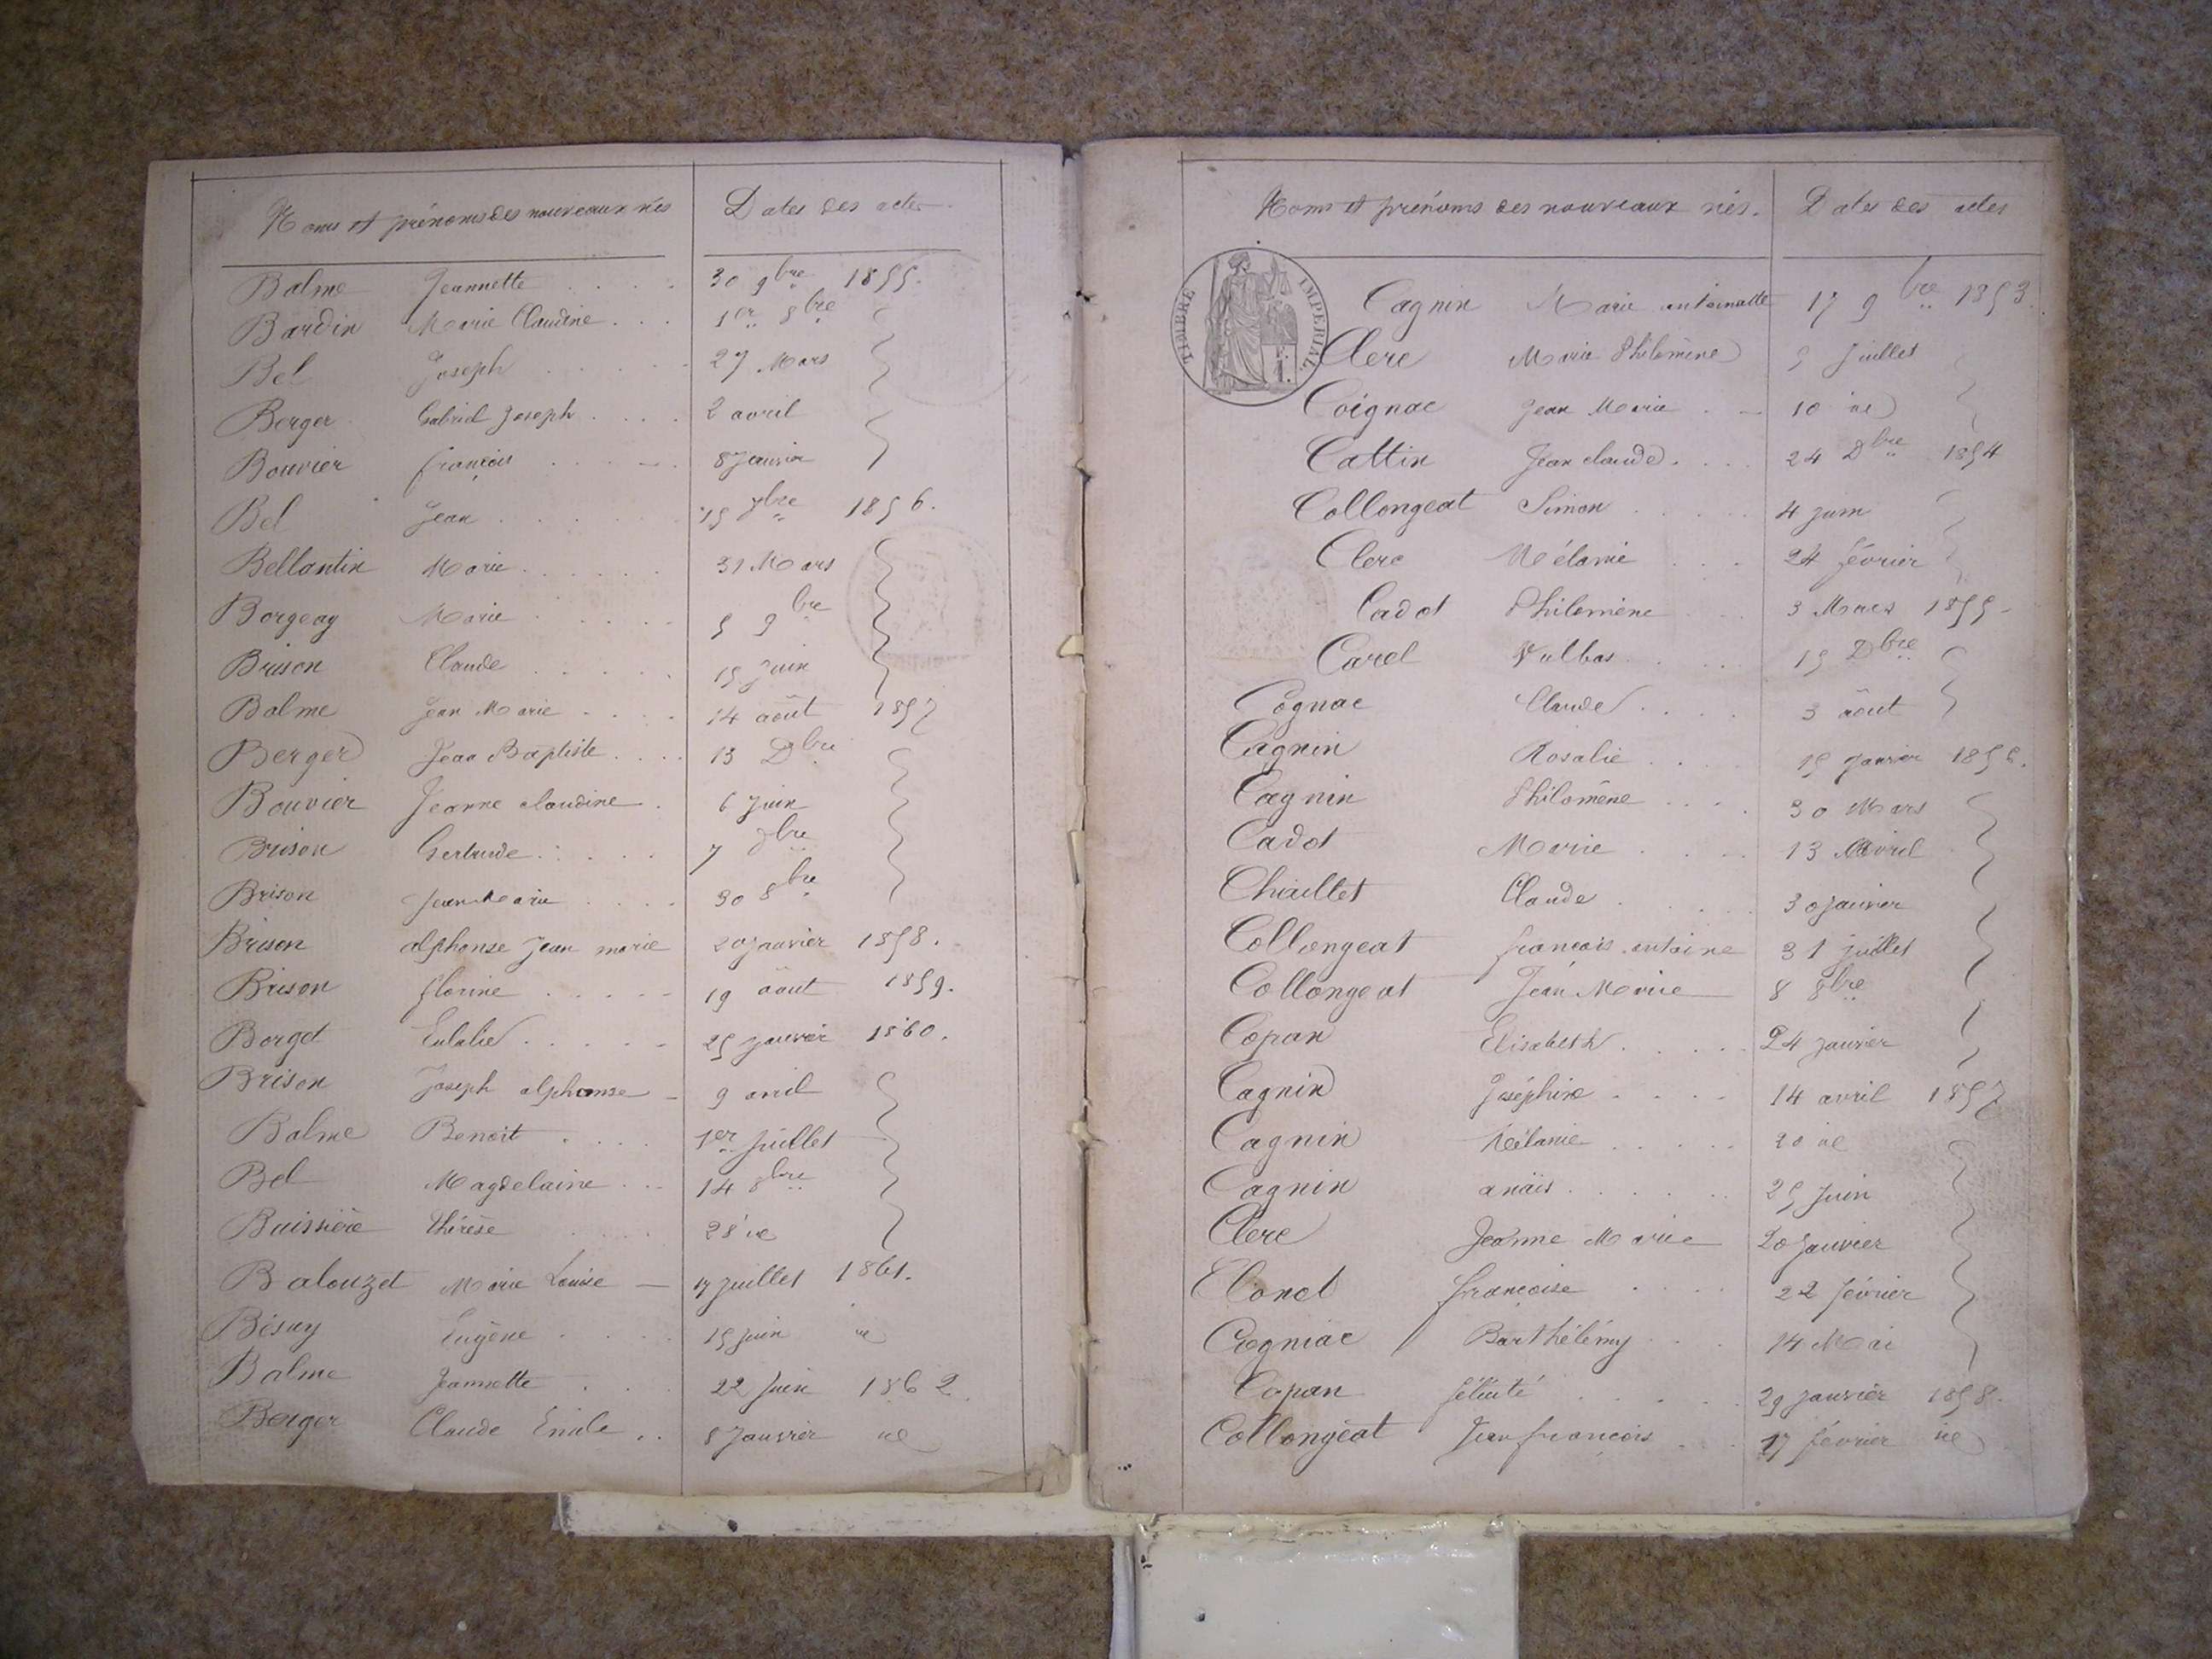 Noms et prénoms des nouveaux nés Dates des actes
Balme Jeannette 30 9bre 1855.
Bardin Marie Claudine 1er 8bre
Bel Joseph 27 Mars
Berger Gabriel Joseph 2 avril
Bouvier françois 8 Janvier
Bel Jean 15 7bre 1856.
Bellantin Marie 31 Mars
Borgeay Marie 5 9bre
Brison Claude 15 Juin
Balme Jean Marie 14 août 1857
Berger Jean Baptiste 13 Dbre
Bouvier Jeanne claudine 6 Juin
Brison Gertrude 7 7bre
Brison Jean Marie 30 8bre
Brison alphonse Jean marie 20 janvier 1858.
Brison florine 19 août 1859.
Borget Eulalie 25 janvier 1860.
Brison Joseph alphonse 9 avril
Balme Benoit 1er Juillet
Bel Magdelaine 14 8bre
Buissière thérèse 28 ue
Balouzet Marie Louise 17 Juillet 1861.
Bésuy Eugène 15 juin ue
Balme Jeannette 22 Juin 1862
Berger Claude Emile 8 Janvier ue
Noms et prénoms des nouveaux nés. Dates des actes
TIMBRE IMPERIAL
Cagnin Marie antoinette 17 9bre 1853.
Clerc Marie Philomène 5 Juillet
Coignac Jean Marie 10 ue
Cattin Jean claude 24 Dbre 1854
Collongeat Simon 4 juin
Clerc Mélanie 24 février
Cadot Philomène 3 Mars 1855
Carel Vulbas 15 Dbre
Cognac Claude 3 août
Cagnin Rosalie 15 janvier 1856.
Cagnin Philomène 30 Mars
Cadot Marie 13 Avril
Chaillet Claude 30 janvier
Collongeat françois antoine 31 juillet
Collongeat Jean Marie 8 8bre
Copan Elisabeth 24 janvier
Cagnin Joséphine 14 avril 1857
Cagnin Mélanie 20 ue
Cagnin anaïs 25 Juin
Clerc Jeanne Marie 20 Janvier
Clonet françoise 22 février
Cogniac Barthélémy 14 Mai
Copan félicité 29 janvier 1858.
Collongeat Jean françois 17 février ue